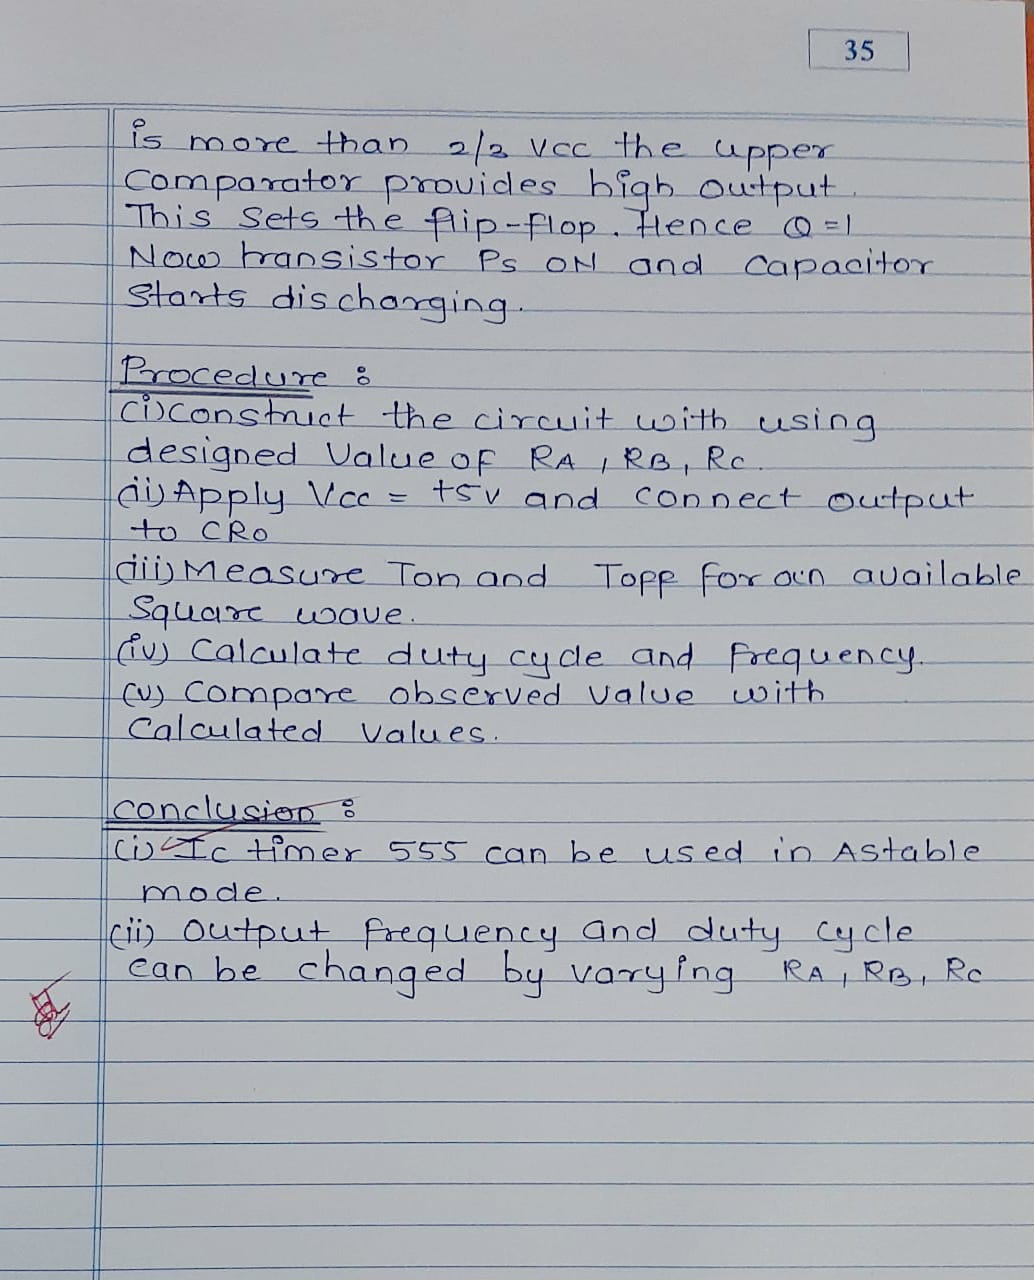 35
is more than 2/3 Vcc the upper
Comparator provides high output.
This Sets the flip-flop. Hence Q=1
Now transistor is ON and capacitor
Starts discharging.
Procedure :
(i) Construct the circuit with using
designed Value of RA, RB, Rc.
(ii) Apply Vcc = +5V and connect output
to CRO
(iii) Measure Ton and Toff for an available
Square wave.
(iv) Calculate duty cycle and frequency.
(v) Compare observed value with
Calculated values.
conclusion :
(i) Ic timer 555 can be used in Astable
mode.
(ii) Output frequency and duty cycle
can be changed by varying RA, RB, Rc